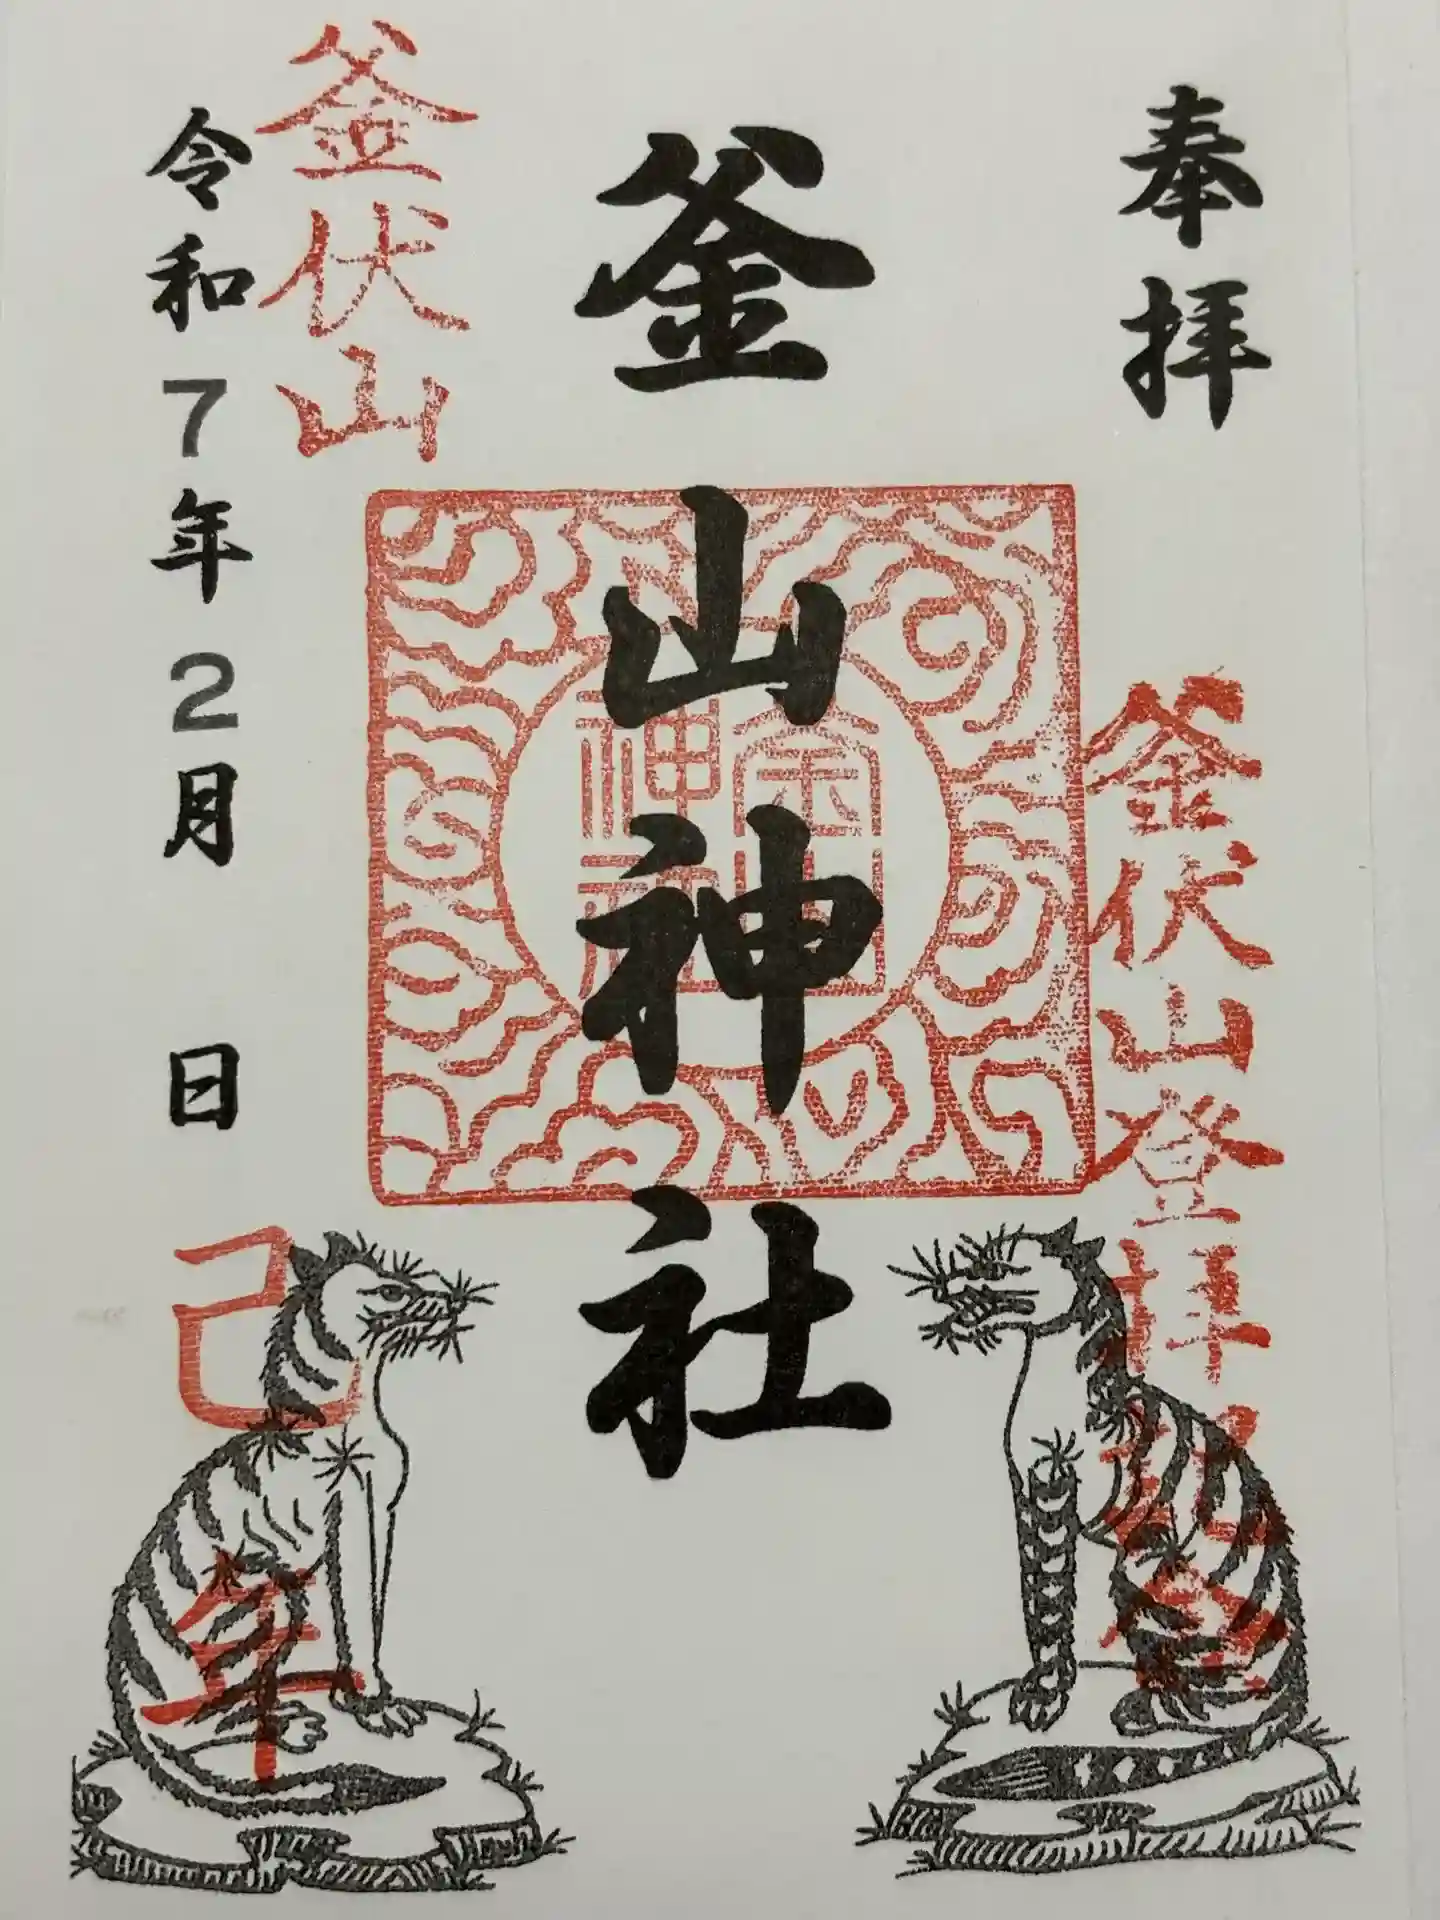 奉拝
釜伏山登拝記念
釜山神社
釜山
神社
釜伏山
令和7年2月 日
己年